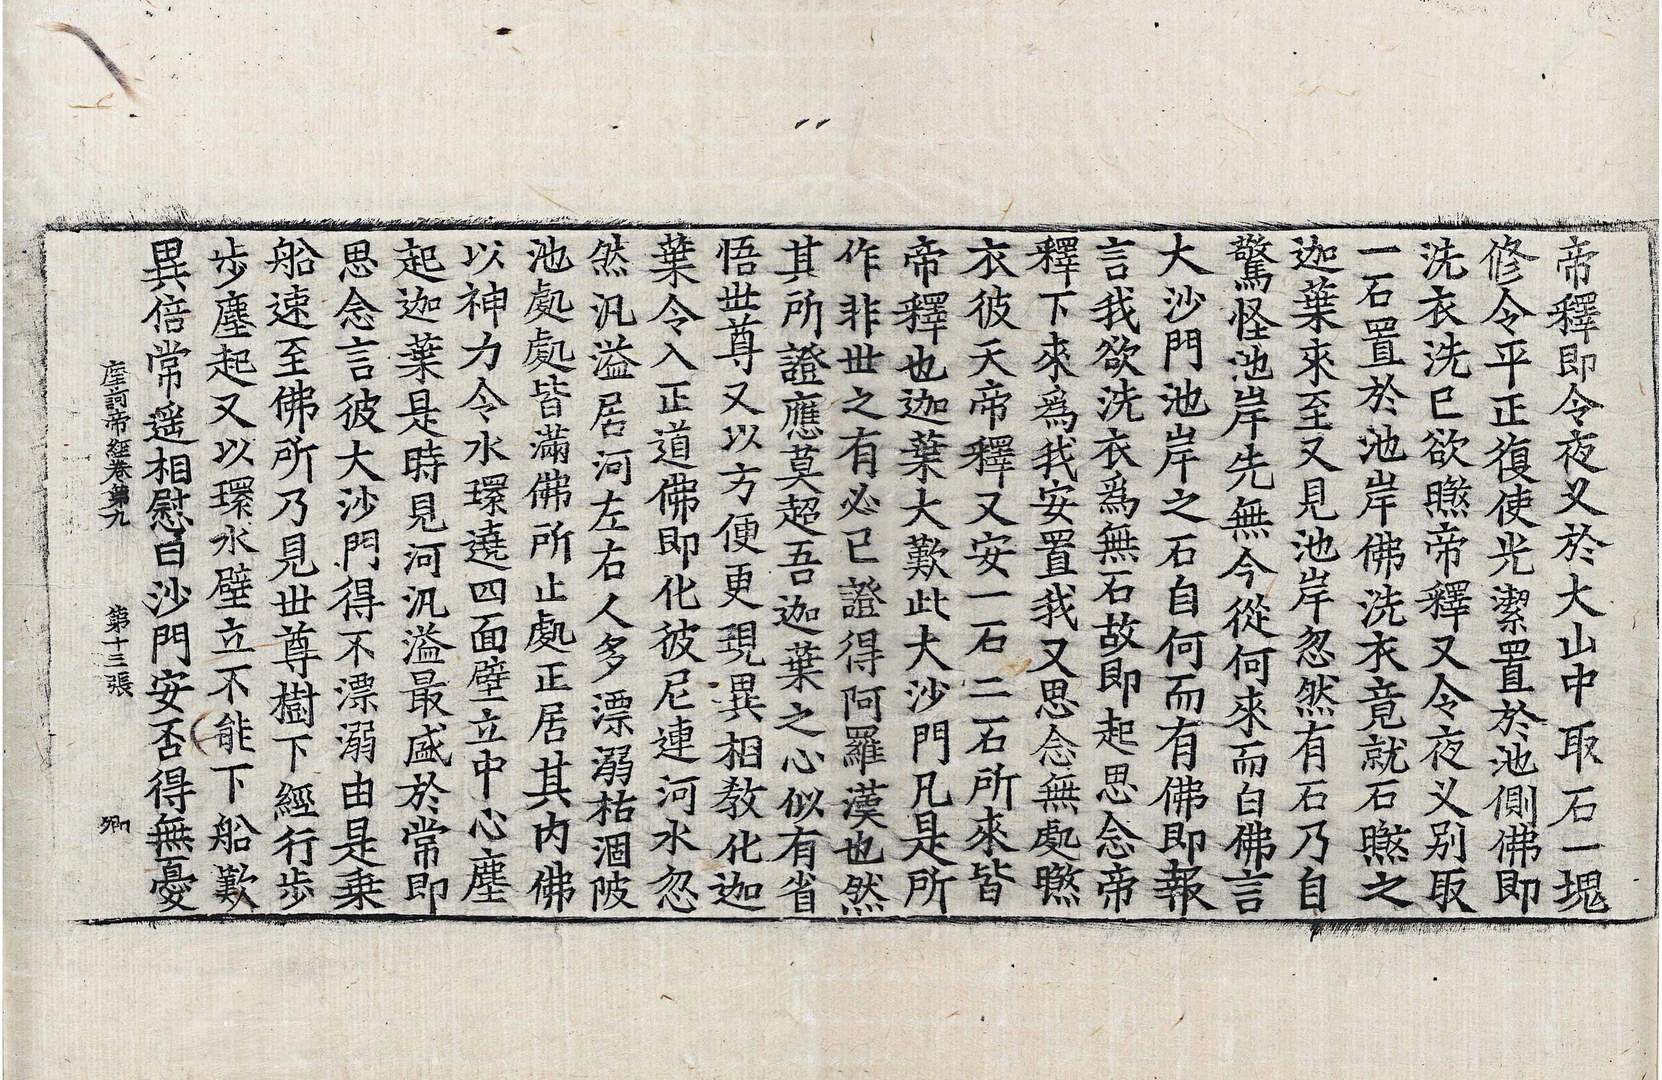 帝釋即令夜叉於大山中取石一塊
修令平正復使光潔置於池側佛即
洗衣洗已欲㬠帝釋又令夜叉別取
一石置於池岸佛洗衣竟就石㬠之
迦葉來至又見池岸忽然有石乃自
驚怪池岸先無今從何來而白佛言
大沙門池岸之石自何而有佛即報
言我欲洗衣爲無石故即起思念帝
釋下來爲我安置我又思念無處㬠
衣彼天帝釋又安一石二石所來皆
帝釋也迦葉大歎此大沙門凡是所
作非世之有必已證得阿羅漢也然
其所證應莫超吾迦葉之心似有省
悟世尊又以方便更現異相教化迦
葉令入正道佛即化彼尼連河水忽
然汎溢居河左右人多漂溺枯涸陂
池處處皆滿佛所止處正居其内佛
以神力令水環遶四面壁立中心塵
起迦葉是時見河汎溢最盛於常即
思念言彼大沙門得不漂溺由是乗
船速至佛所乃見世尊樹下經行步
步塵起又以環水壁立不能下船歎
異倍常遥相慰白沙門安否得無憂
摩訶帝經卷第九 第十三張 卿